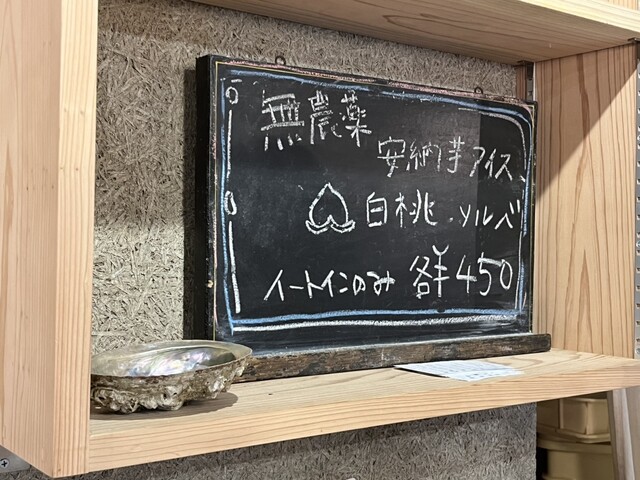 無農薬
安納芋アイス、
白桃.ソルベ
イートインのみ 各¥450